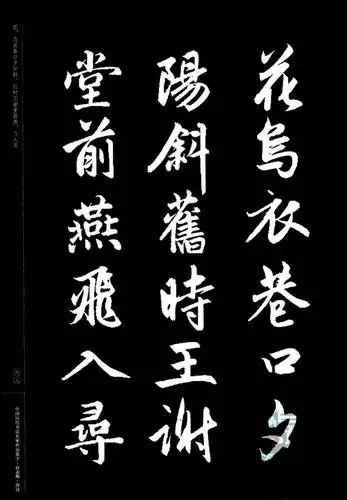 花烏衣巷口夕
陽斜舊時王謝
堂前燕飛入尋